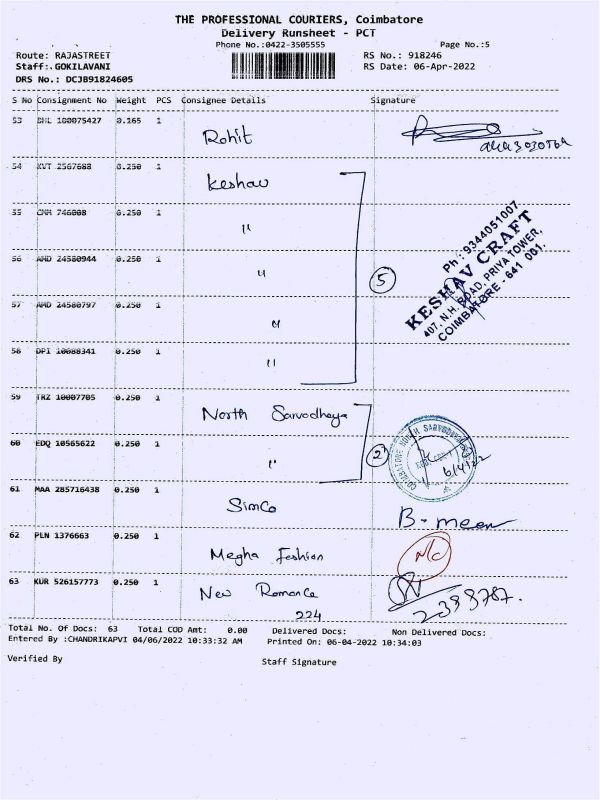 THE PROFESSIONAL COURIERS, Coimbatore
Delivery Runsheet - PCT
Phone No.:0422-3505555 Page No.:5
Route: RAJASTREET RS No.: 918246
Staff:.GOKILAVANI RS Date: 06-Apr-2022
DRS No.: DCJB91824605
S No Consignment No Weight PCS Consignee Details Signature
53 DHL 100075427 0.165 1 Rohit
54 KVT 2567688 0.250 1 Keshav
55 CNM 746008 0.250 1 "
56 AMD 24580944 0.250 1 "
57 AMD 24580797 0.250 1 "
58 DPI 10088341 0.250 1 "
5
Ph : 9344051007
KESHAV CRAFT
407, N.H. ROAD, PRIYA TOWER,
COIMBATORE - 641 001.
59 TRZ 10007705 0.250 1 North Sarvodhaya
60 EDQ 10565622 0.250 1 "
2
COIMBATORE NORTH
6/4/22
61 MAA 285716438 0.250 1 Simco B. meen
62 PLN 1376663 0.250 1 Megha Feshion N/c
63 KUR 526157773 0.250 1 New Romance
224
Total No. Of Docs: 63 Total COD Amt: 0.00 Delivered Docs: Non Delivered Docs:
Entered By :CHANDRIKAPVI 04/06/2022 10:33:32 AM Printed On: 06-04-2022 10:34:03
Verified By Staff Signature